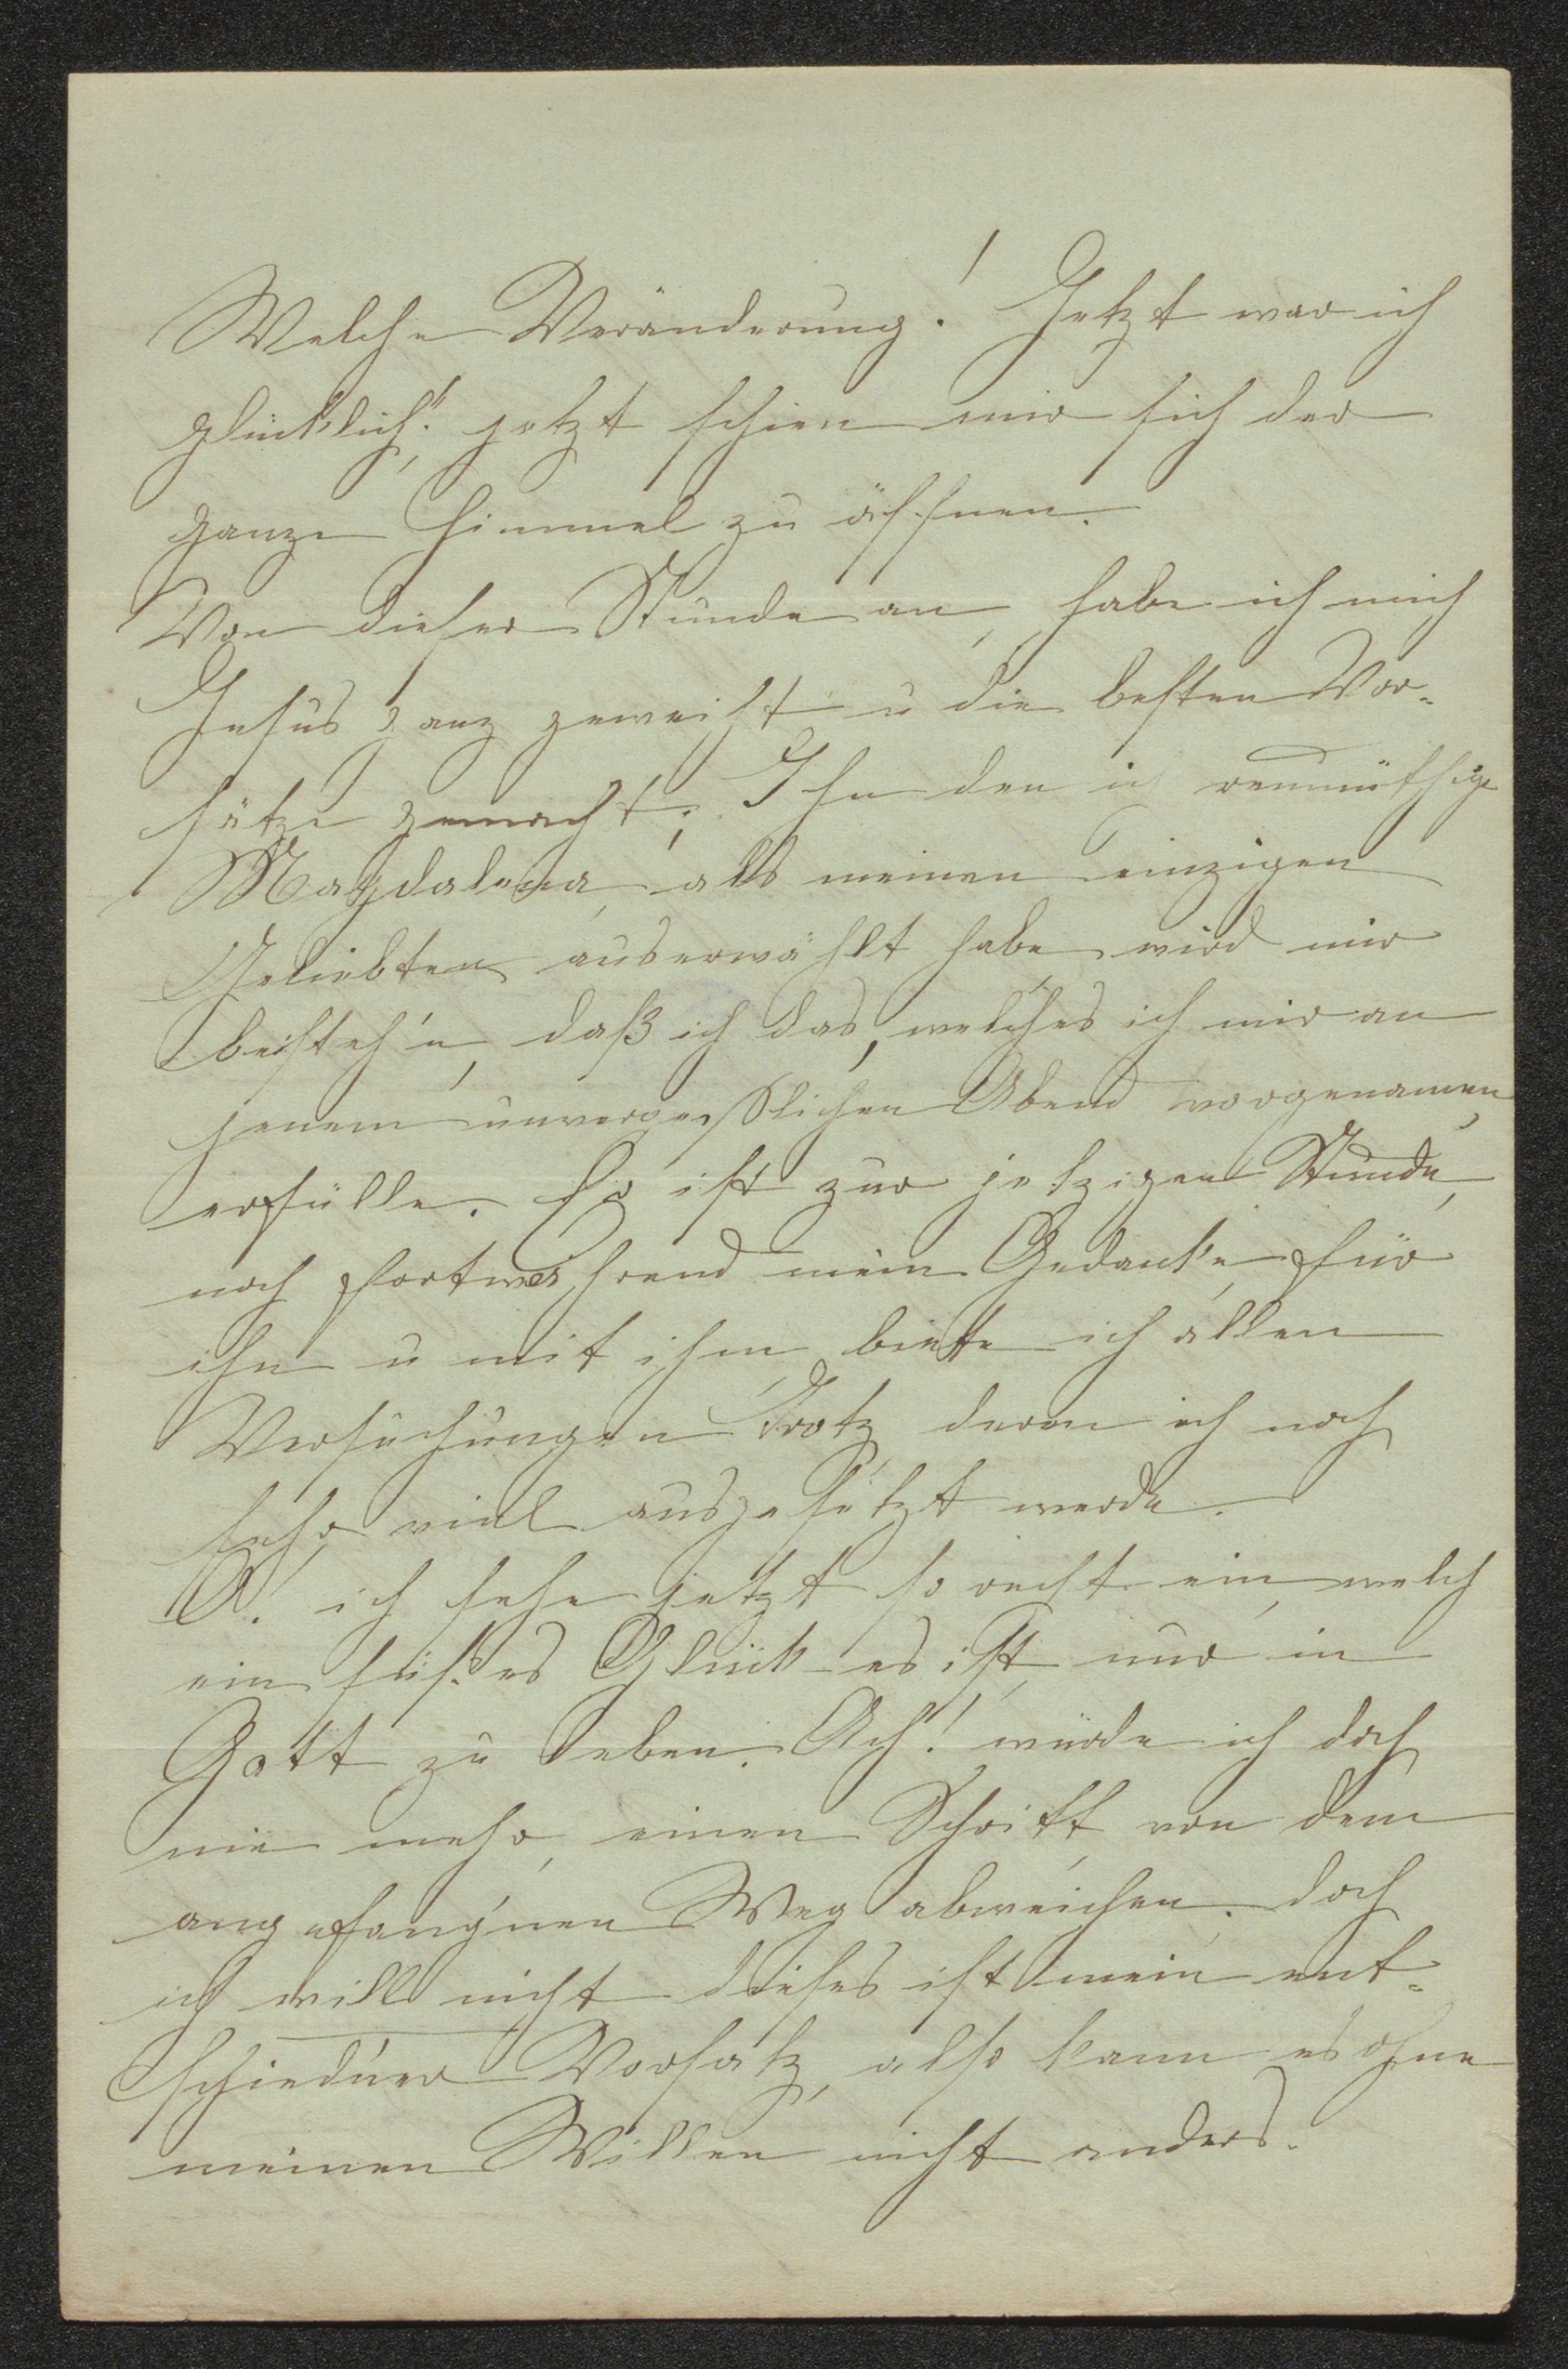 Welche Veränderung! Jetzt war ich
glücklich! jetzt schien mir sich der
ganze Himmel zu öffnen.
Von dieser Stunde an, habe ich mich
Jesus ganz geweiht u die besten Vor-
sätze gemacht; Ihn den ich reumüthige
Magdalena, als meinen einzigen
Geliebten auserwählt habe wird mir
beisteh'n, daß ich das, welches ich mir an
jenem unvergeßlichen Abend vorgenomen,
erfülle. Es ist zur jetzigen Stunde,
noch fortwährend mein Gedanke, für
ihn u mit ihm, biette ich allen
Versuchungen Trotz, deren ich noch
sehr viel ausgesetzt werde.
O! ich sehe jetzt so recht ein, welch
ein süßes Glück es ist, nur in
Gott zu leben. Ach! würde ich doch
nie mehr, einen Schritt, von dem
angefang'nen Weg abweichen. doch
ich will nicht dieses ist mein ent-
schied'ner Vorsatz, also kann es ohne
meinen Willen nicht anders.